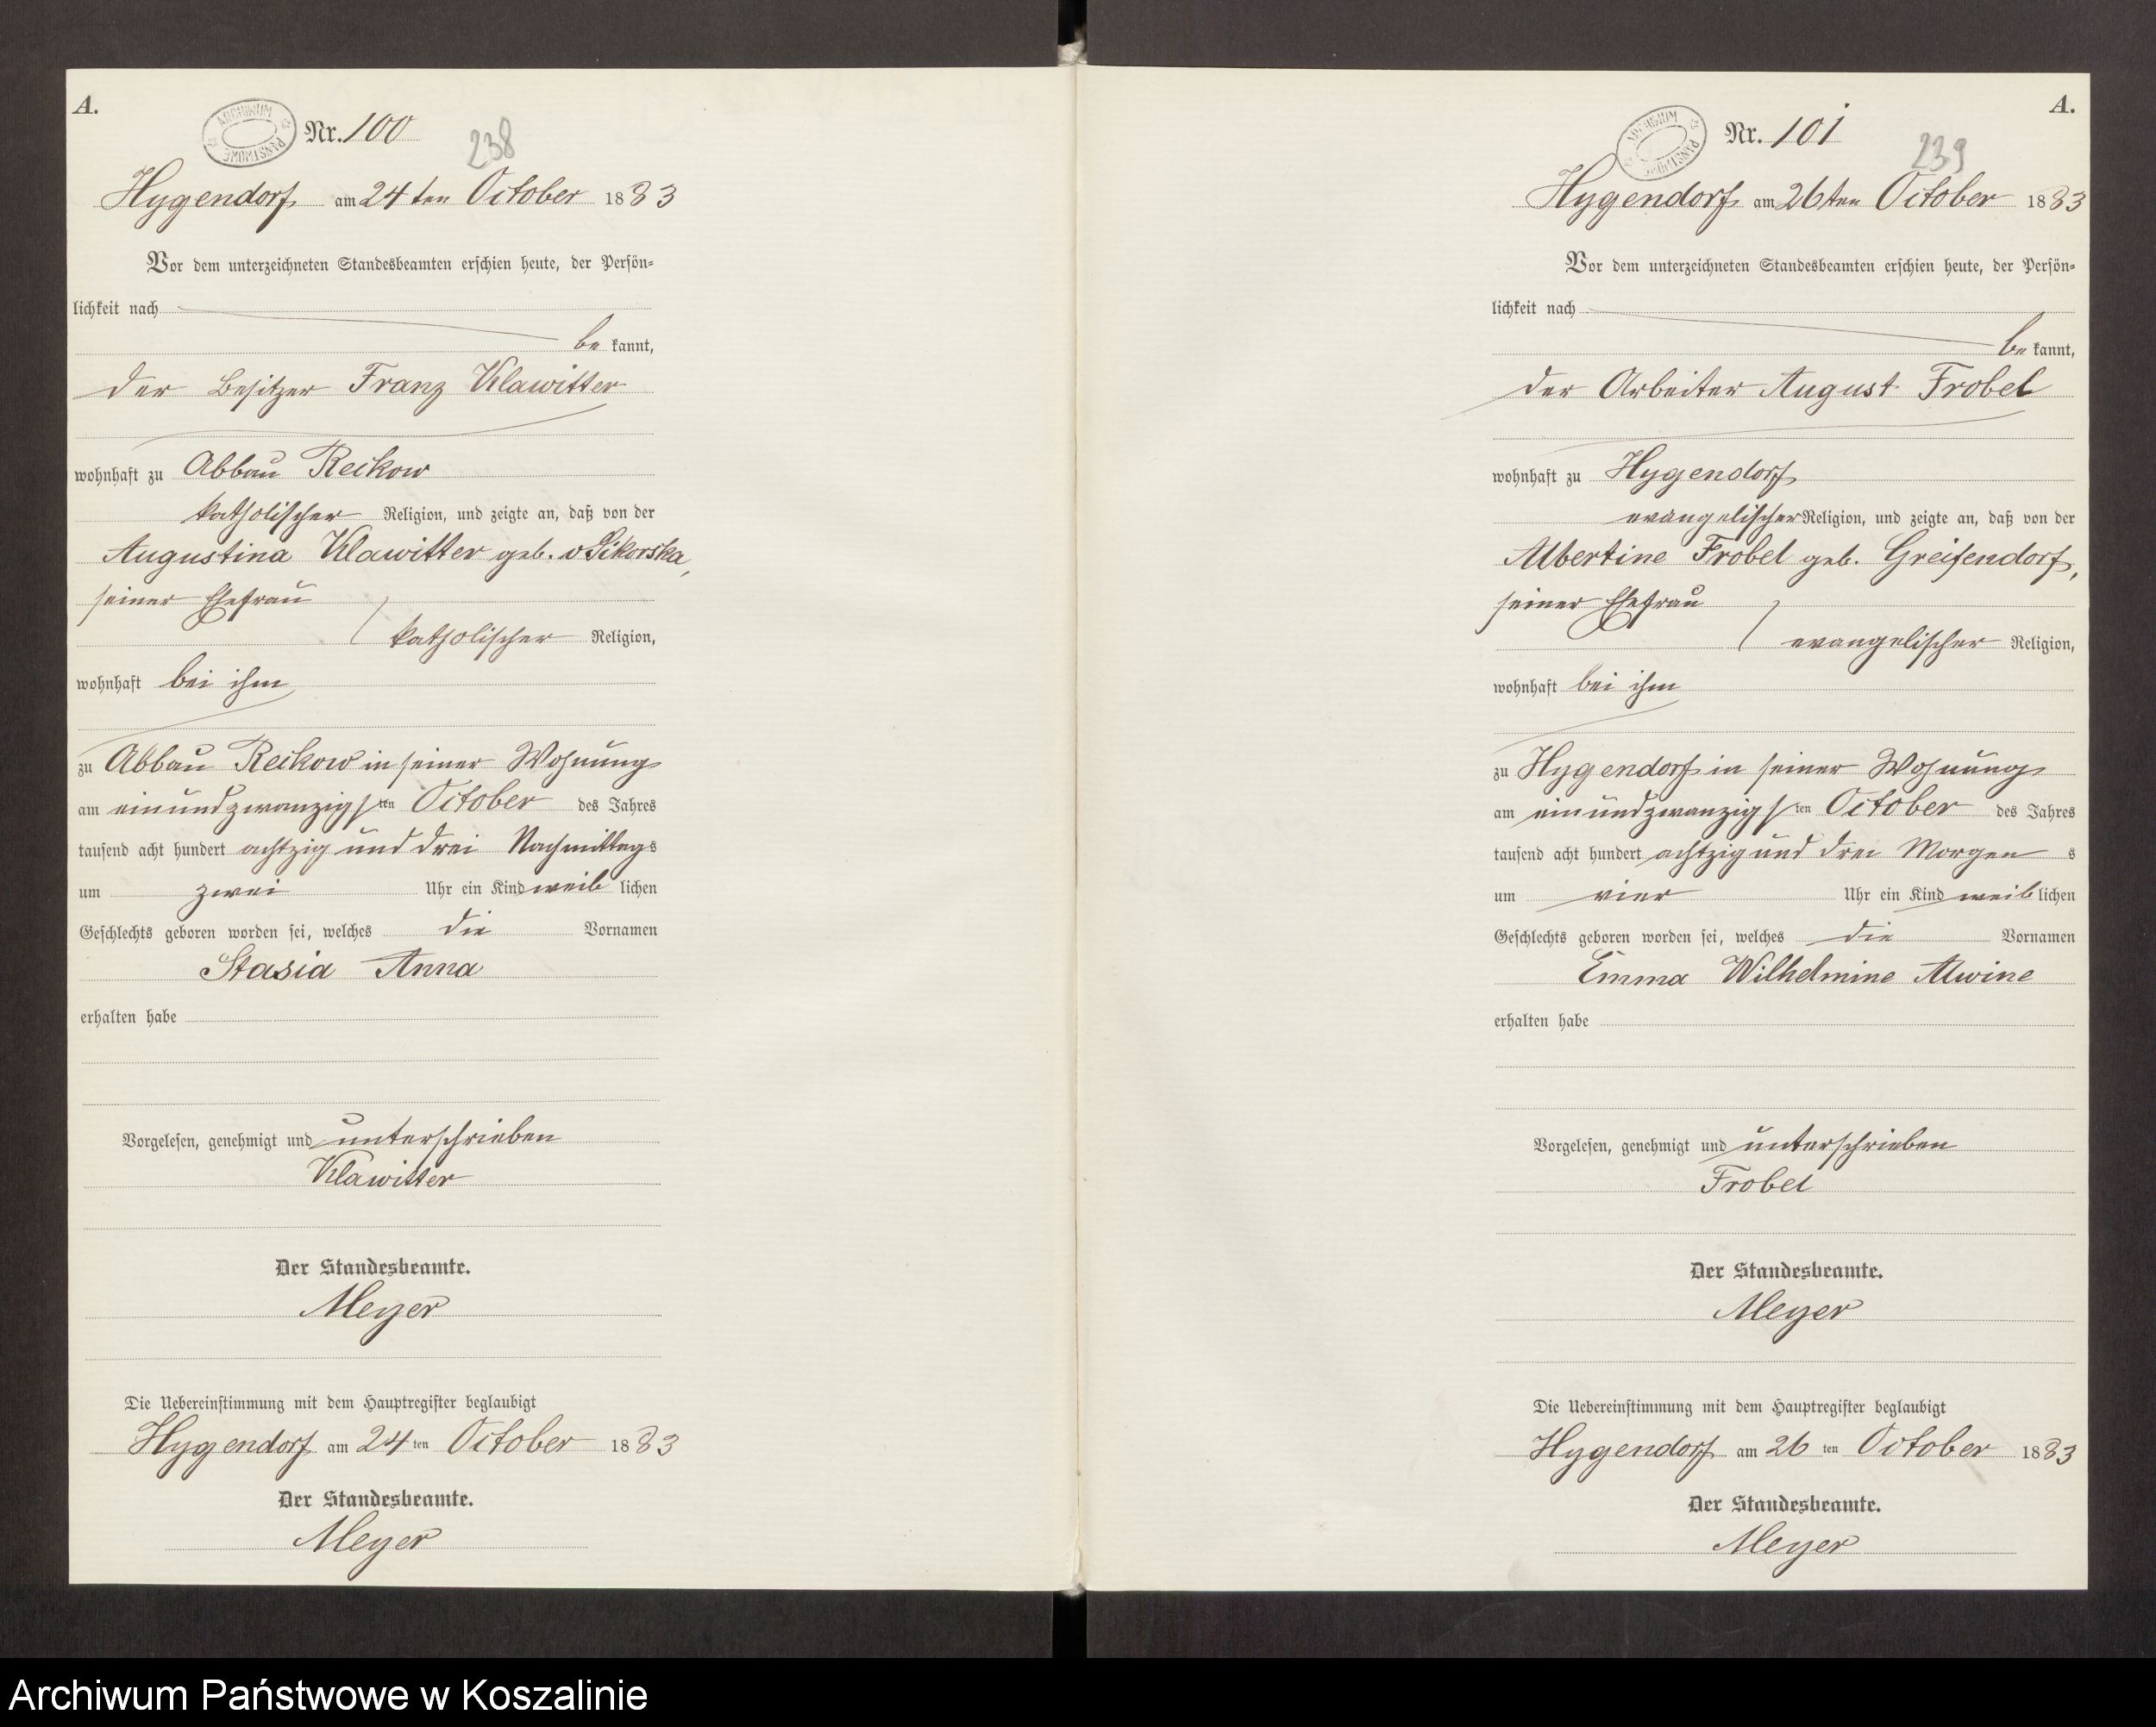 A.
ARCHIWUM PAŃSTWOWE
Nr. 100
238
Hygendorf am 24ten October 1883
Vor dem unterzeichneten Standesbeamten erschien heute, der Persön-
lichkeit nach
be kannt,
der Besitzer Franz Klawitter
wohnhaft zu Abbau Reckow
katholischer Religion, und zeigte an, daß von der
Augustina Klawitter geb. v Sikorska,
seiner Ehefrau
katholischer Religion,
wohnhaft bei ihm
zu Abbau Reckow in seiner Wohnung
am einundzwanzigsten October des Jahres
tausend acht hundert achtzig und drei Nachmittags
um zwei Uhr ein Kind weiblichen
Geschlechts geboren worden sei, welches die Vornamen
Stasia Anna
erhalten habe
Vorgelesen, genehmigt und unterschrieben
Klawitter
Der Standesbeamte.
Meyer
Die Uebereinstimmung mit dem Hauptregister beglaubigt
Hygendorf am 24ten October 1883
Der Standesbeamte.
Meyer
A.
ARCHIWUM PAŃSTWOWE
Nr. 101
239
Hygendorf am 26ten October 1883
Vor dem unterzeichneten Standesbeamten erschien heute, der Persön-
lichkeit nach
be kannt,
der Arbeiter August Frobel
wohnhaft zu Hygendorf
evangelischer Religion, und zeigte an, daß von der
Albertine Frobel geb. Greifendorf,
seiner Ehefrau
evangelischer Religion,
wohnhaft bei ihm
zu Hygendorf in seiner Wohnung
am einundzwanzigsten October des Jahres
tausend acht hundert achtzig und drei Morgens
um vier Uhr ein Kind weiblichen
Geschlechts geboren worden sei, welches die Vornamen
Emma Wilhelmine Alwine
erhalten habe
Vorgelesen, genehmigt und unterschrieben
Frobel
Der Standesbeamte.
Meyer
Die Uebereinstimmung mit dem Hauptregister beglaubigt
Hygendorf am 26ten October 1883
Der Standesbeamte.
Meyer
Archiwum Państwowe w Koszalinie